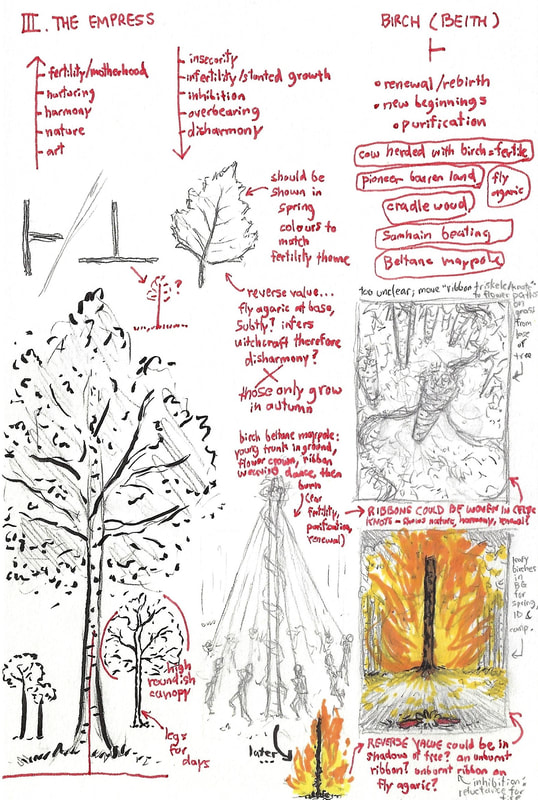 III. THE EMPRESS
fertility/motherhood
nurturing
harmony
nature
art
insecurity
infertility/stunted growth
inhibition
overbearing
disharmony
BIRCH (BEITH)
renewal/rebirth
new beginnings
purification
cow herded with birch = fertile
pioneer barren land
fly
agaric
cradle wood
Samhain beating
Beltane maypole
should be
shown in
spring
colours to
match
fertility theme
?
reverse value...
fly agaric at base,
subtly? infers
witchcraft therefore
disharmony?
those only grow
in autumn
too unclear; move "ribbon triskele/knots"
to flower paths
on
grass
from
base
of
tree
birch beltane maypole:
young trunk in ground,
flower crown, ribbon
weaving dance, then
burn
(for
fertility,
purification,
renewal)
RIBBONS COULD BE WOVEN IN CELTIC
KNOTS - shows nature, harmony, renewal?
leafy
birches
in
BG
for
spring,
ID &
comp.
high
roundish
canopy
legs
for
days
later
REVERSE VALUE could be in
shadows of tree? an unburnt
ribbon? unburnt ribbon on
fly agaric?
inhibition:
reluctance for